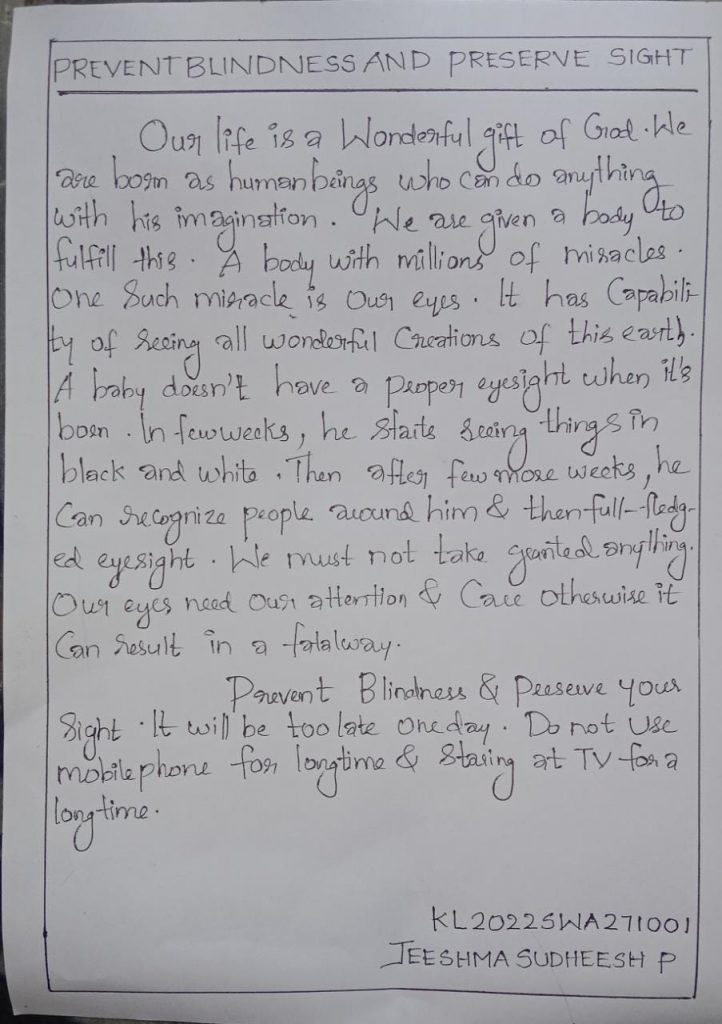 PREVENT BLINDNESS AND PRESERVE SIGHT
Our life is a Wonderful gift of God. We
are born as human beings who can do anything
with his imagination. We are given a body to
fulfill this. A body with millions of miracles.
One Such miracle is Our eyes. It has Capabili-
ty of Seeing all wonderful Creations of this earth.
A baby doesn't have a proper eyesight when it's
born. In few weeks, he Starts Seeing things in
black and white. Then after few more weeks, he
Can recognize people around him & then full-fledg-
ed eyesight. We must not take granted anything.
Our eyes need Our attention & Care Otherwise it
Can result in a fatal way.
Prevent Blindness & Preserve your
Sight. It will be too late One day. Do not Use
mobile phone for longtime & Staring at TV for a
long time.
KL2022SWA271001
JEESHMA SUDHEESH P